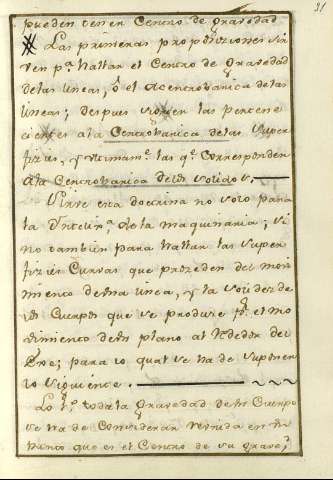 31
pueden tener Centro de gravedad
Las primeras proposiciones sir
ven p.ª hallar el Centro de Gravedad
de las lineas, ô el Acentrobarica de las
lineas; despues vienen las pertene
cientes a la Centrobarica de las Super
fizies, y ultimam.te las q.e corresponden
a la Centrobarica de los solidos.
Sirve esta doctrina no solo para
la Intelig.ª de la maquinaria, si
no tambien para hallar las super
fizies Curvas que prozeden del movi
miento de una linea, y la solidez de
los Cuerpos que se produze p.r el mo
vimiento de un plano al rededor del
Exe; para lo qual se ha de suponer
lo siguiente.
Lo 1.º toda la gravedad de un Cuerpo
se ha de considerar reunida en un
punto que es el Centro de su grave.d